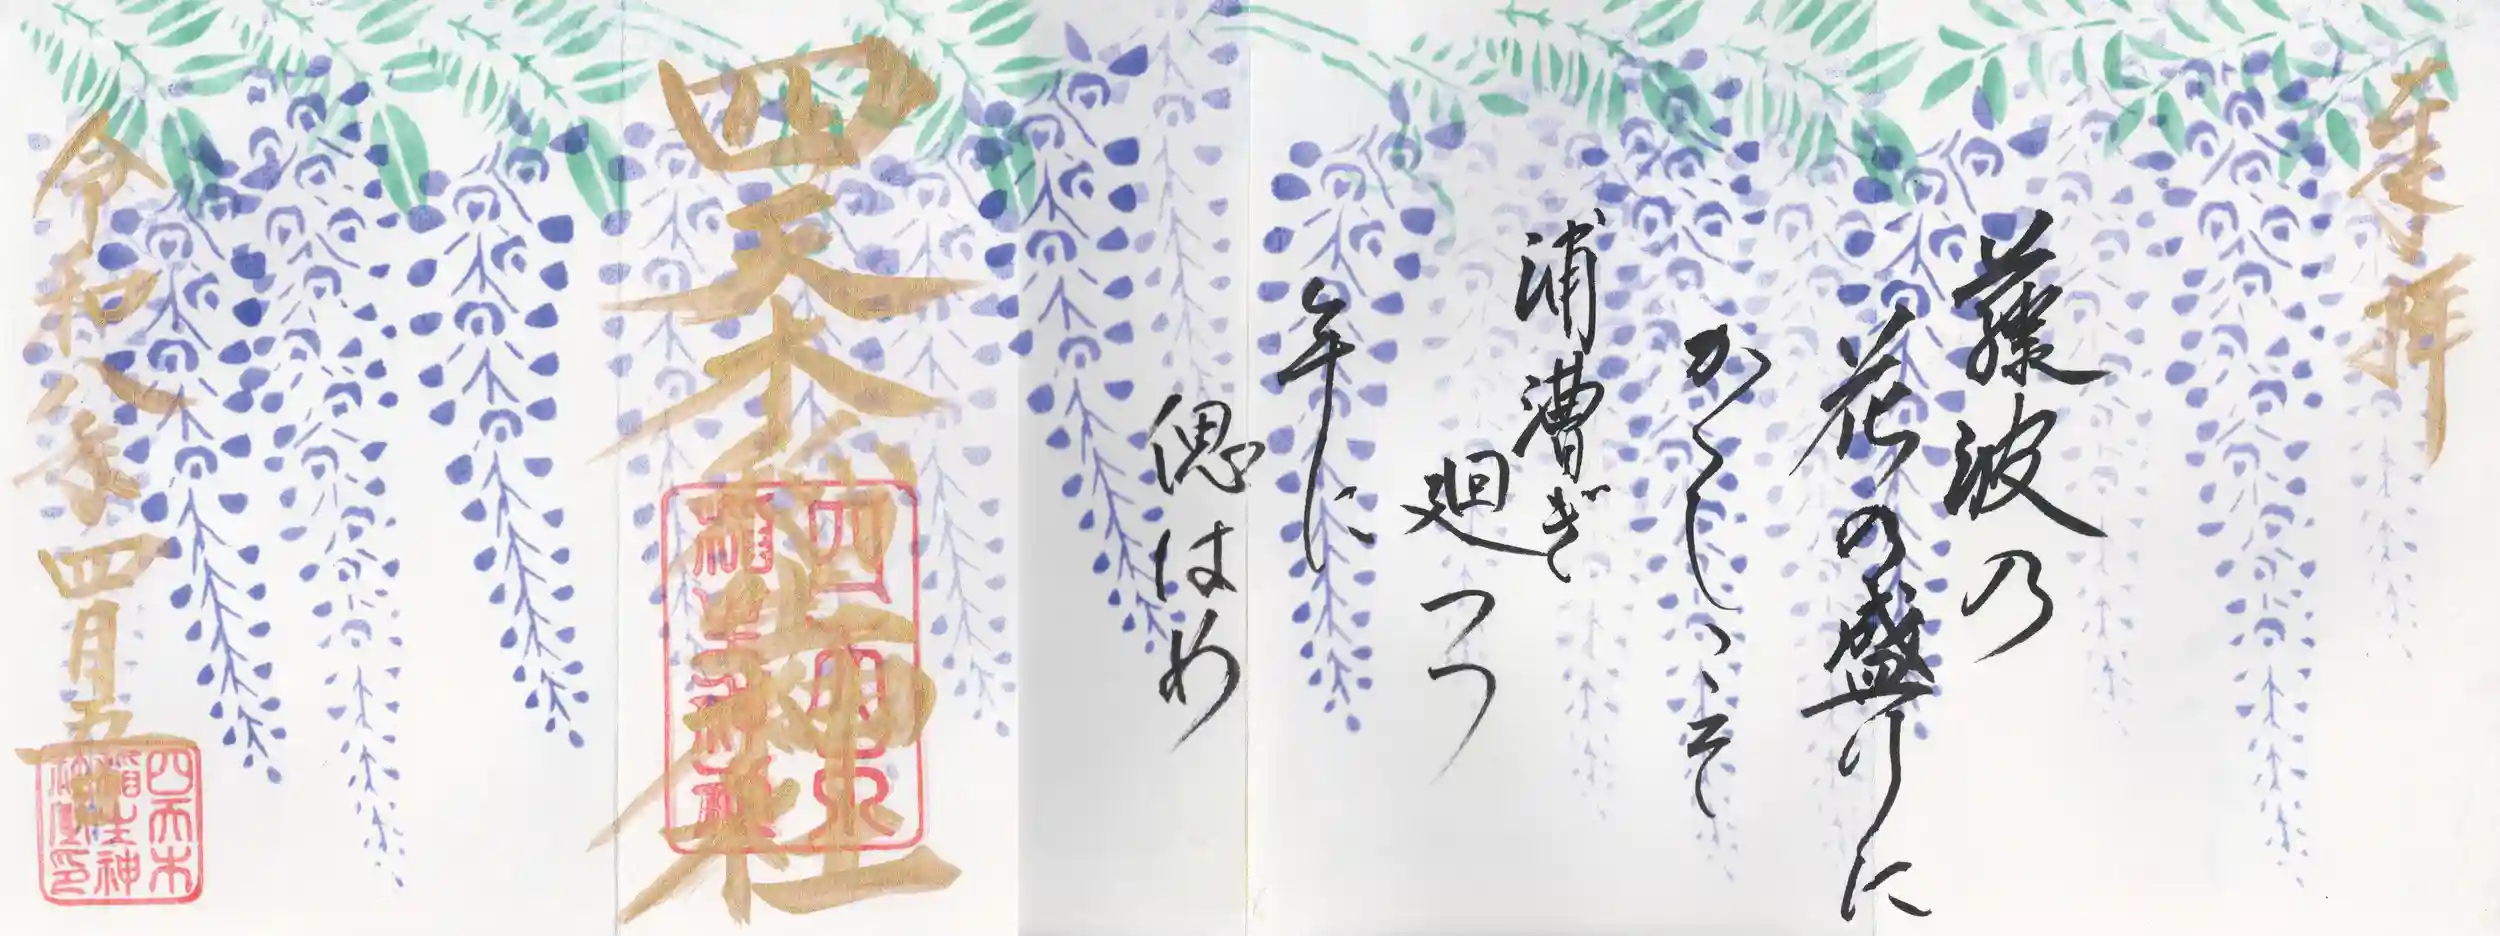 奉拝
藤波の
花の盛りに
かくしこそ
浦漕ぎ
廻つつ
年に
偲はめ
四天木稲生神社
四天木
稲生神社
令和八年四月五日
四天木
稲生神